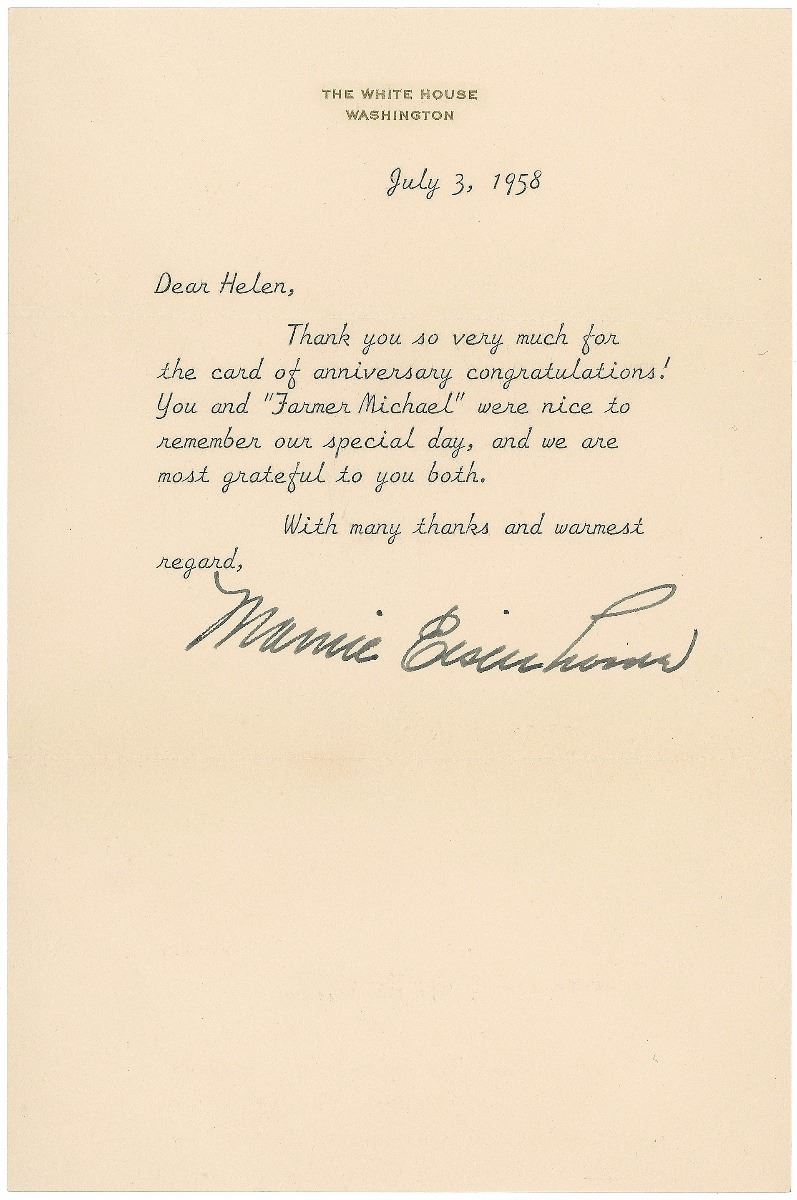 THE WHITE HOUSE
WASHINGTON
July 3, 1958
Dear Helen,
Thank you so very much for
the card of anniversary congratulations!
You and "Farmer Michael" were nice to
remember our special day, and we are
most grateful to you both.
With many thanks and warmest
regard,
Mamie Eisenhower